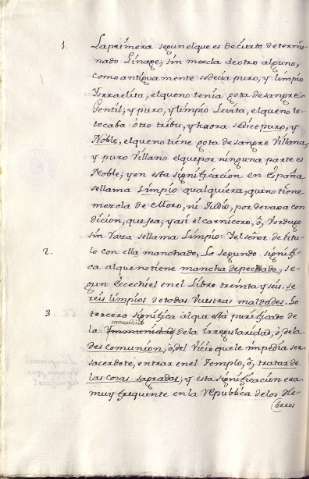 1. La primera segun el que es de cierto determi-
nado Linage, sin mezcla de otro alguno,
como antiguamente sedecia puro, y limpio
Israelita, el queno tenia gota de sangre
Gentil; y puro, y limpio Levita, el queno te-
tocaba otro tribu, y haora se dice puro, y
Noble, el queno tiene gota de sangre Villana,
y puro Villano el que por ninguna parte es
Noble; y en esta significacion en España
sellama Limpio qualquiera, queno tiene
mezcla de Moro, ni Judio, por devaxa con
dicion, que sea; y asi el carnicero, ò, Verdugo
sin raza sellama Limpio: y el señor de titu-
2. lo con ella manchado. Lo segundo signifi-
ca alqueno tiene mancha de peccado, se-
gun Ezechiel en el Libro treinta y seis. se
reis limpios de todas vuestras maldades. Lo
3. tercero significa alque està purificado de
la inmundicia de la Irregularidad, ò, de la
descomunion, ò, del vicio que le impedia ser
sacerdote, entrar en el Templo, ò, tratar de
las cosas sagradas; y esta significacion era
muy frequente en la Republica de los He-
breos